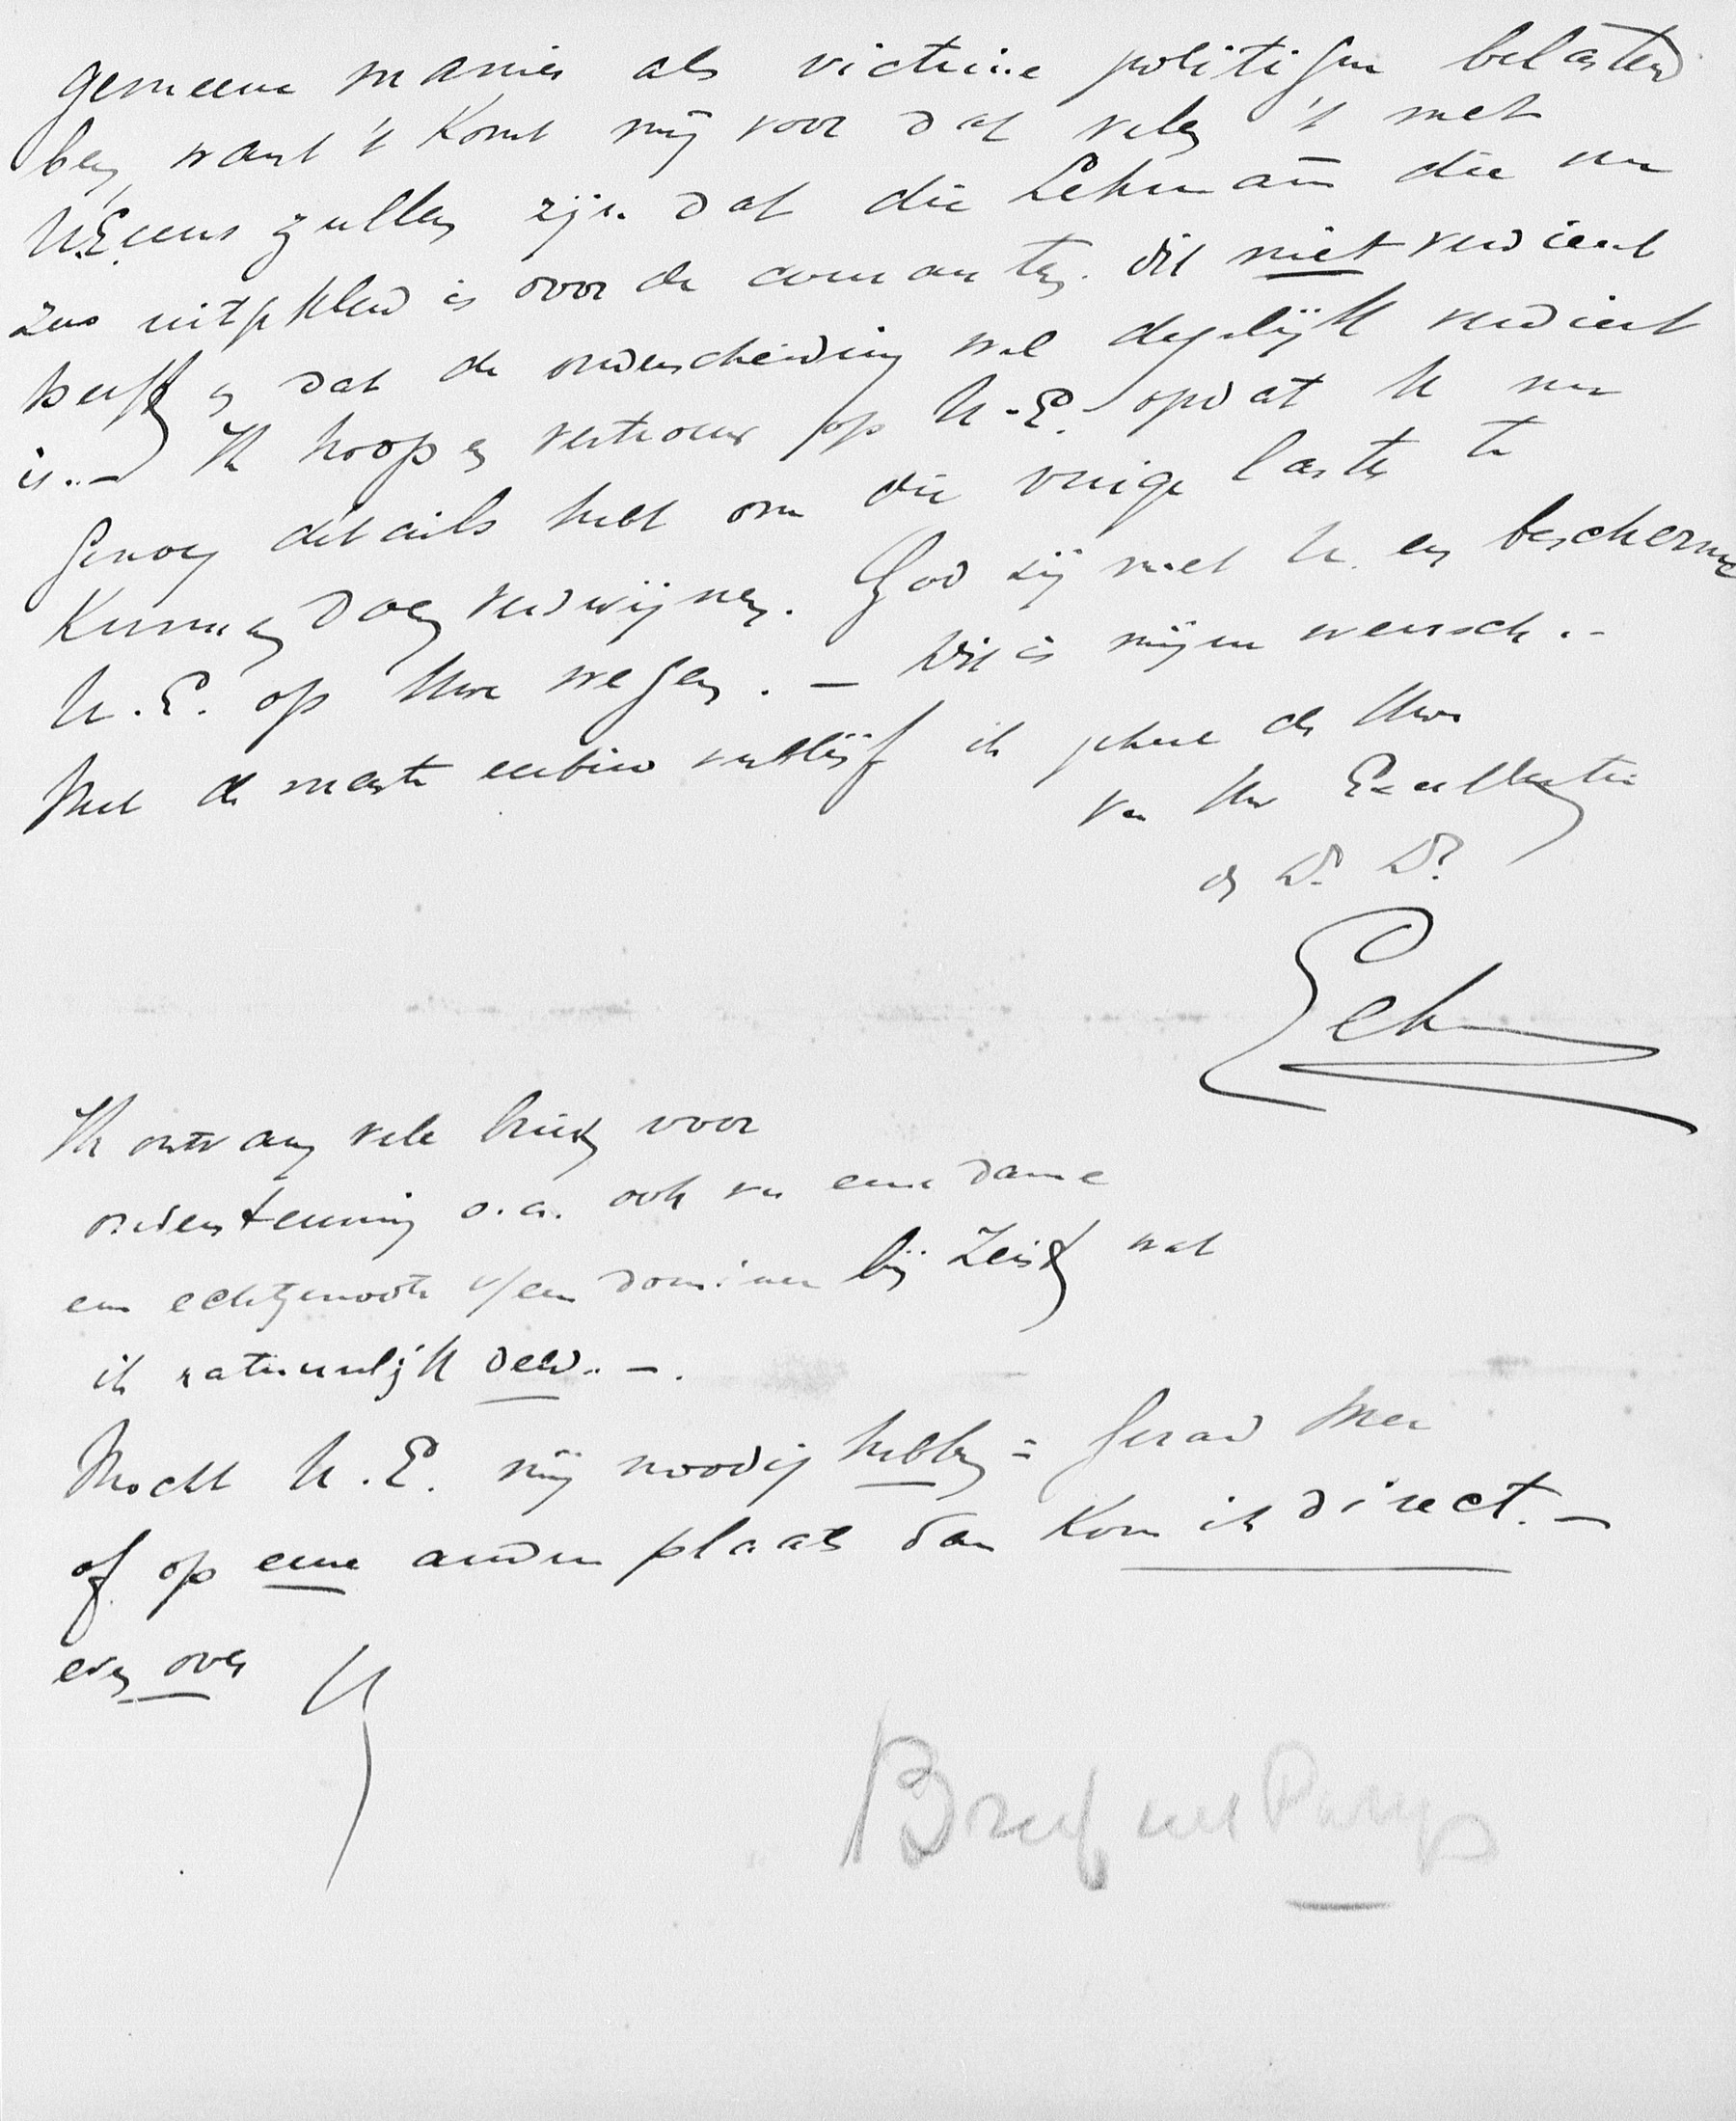 gemeene manier als victime politique belasterd
ben, want 't komt mij voor dat velen 't met
U.E. eens zullen zijn dat die Lehmann die nu
zoo uitgekleed is door de couranten dit niet verdient
heeft en dat de onderscheiding wel degelijk verdient
is.. – Ik hoop en vertrouw op U.E. opdat U nu
genoeg détails hebt om die vuige laster te
kunnen doen verdwijnen. God zij met U en bescherme
U.E. op Uwe wegen. – Dit is mijne wensch. –
Met de meeste eerbied verblijf ik geheel de Uwe
van Uw Excellentie
de Dw. Dr.
Lehm
Ik ontvang vele brieven voor
ondersteuning o.a. ook van eene dame
een echtgenoote v/een dominee bij Zeist wat
ik natuurlijk deed.. –.
Mocht U.E. mij noodig hebben = Gerard
of op eene andere plaats dan kom ik direct. –
even over
Brief uit Parijs